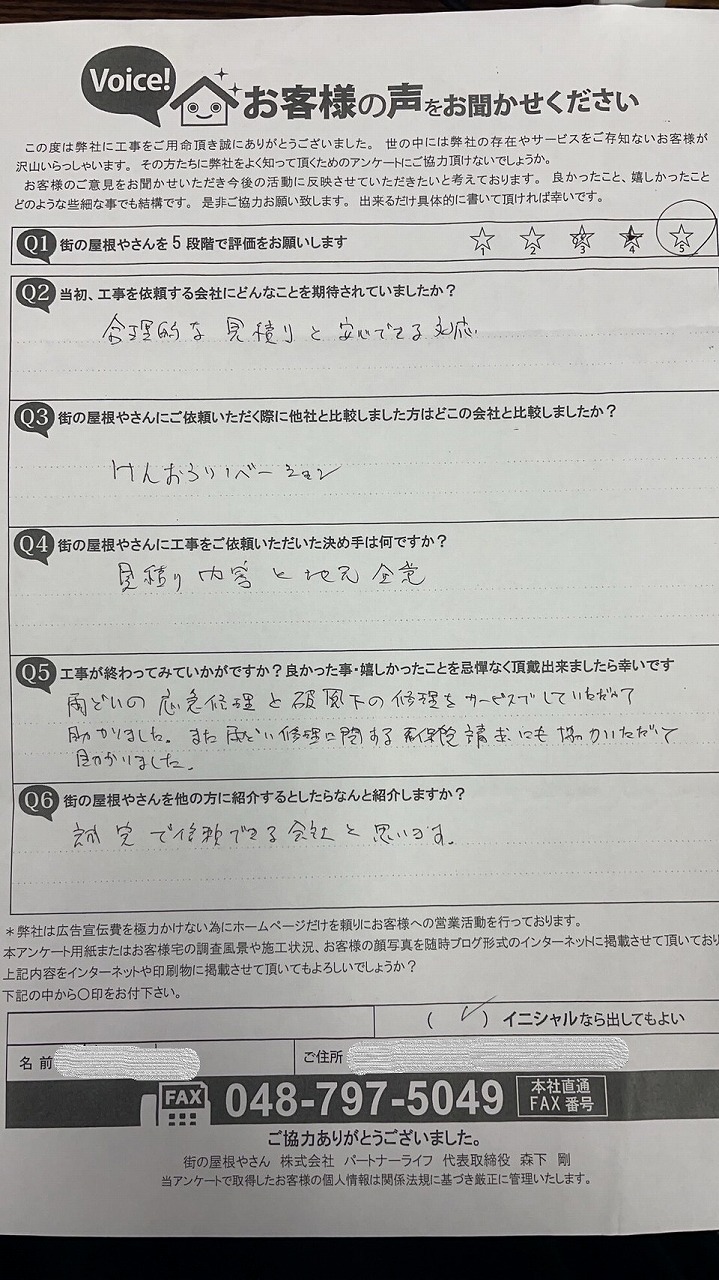 Voice!
お客様の声をお聞かせください
この度は弊社に工事をご用命頂き誠にありがとうございました。 世の中には弊社の存在やサービスをご存知ないお客様が
沢山いらっしゃいます。 その方たちに弊社をよく知って頂くためのアンケートにご協力頂けないでしょうか。
お客様のご意見をお聞かせいただき今後の活動に反映させていただきたいと考えております。 良かったこと、嬉しかったこと
どのような些細な事でも結構です。 是非ご協力お願い致します。 出来るだけ具体的に書いて頂ければ幸いです。
Q1 街の屋根やさんを5段階で評価をお願いします
1 2 3 4 5
Q2 当初、工事を依頼する会社にどんなことを期待されていましたか？
合理的な見積りと安心できる対応
Q3 街の屋根やさんにご依頼いただく際に他社と比較しました方はどこの会社と比較しましたか？
けんおうリノベーション
Q4 街の屋根やさんに工事をご依頼いただいた決め手は何ですか？
見積り内容と地元企業
Q5 工事が終わってみていかがですか？良かった事・嬉しかったことを忌憚なく頂戴出来ましたら幸いです
雨どいの応急修理と破風下の修理をサービスでしていただいて
助かりました。また雨どい修理に関する保険請求にも協力いただいて
助かりました。
Q6 街の屋根やさんを他の方に紹介するとしたらなんと紹介しますか？
誠実で信頼できる会社と思います。
＊弊社は広告宣伝費を極力かけない為にホームページだけを頼りにお客様への営業活動を行っております。
本アンケート用紙またはお客様宅の調査風景や施工状況、お客様の顔写真を随時ブログ形式のインターネットに掲載させて頂いており
上記内容をインターネットや印刷物に掲載させて頂いてもよろしいでしょうか？
下記の中から〇印をお付下さい。
( ✓ ) イニシャルなら出してもよい
名 前 ご住所
FAX 048-797-5049 本社直通 FAX番号
ご協力ありがとうございました。
街の屋根やさん 株式会社 パートナーライフ 代表取締役 森下 剛
当アンケートで取得したお客様の個人情報は関係法規に基づき厳正に管理いたします。